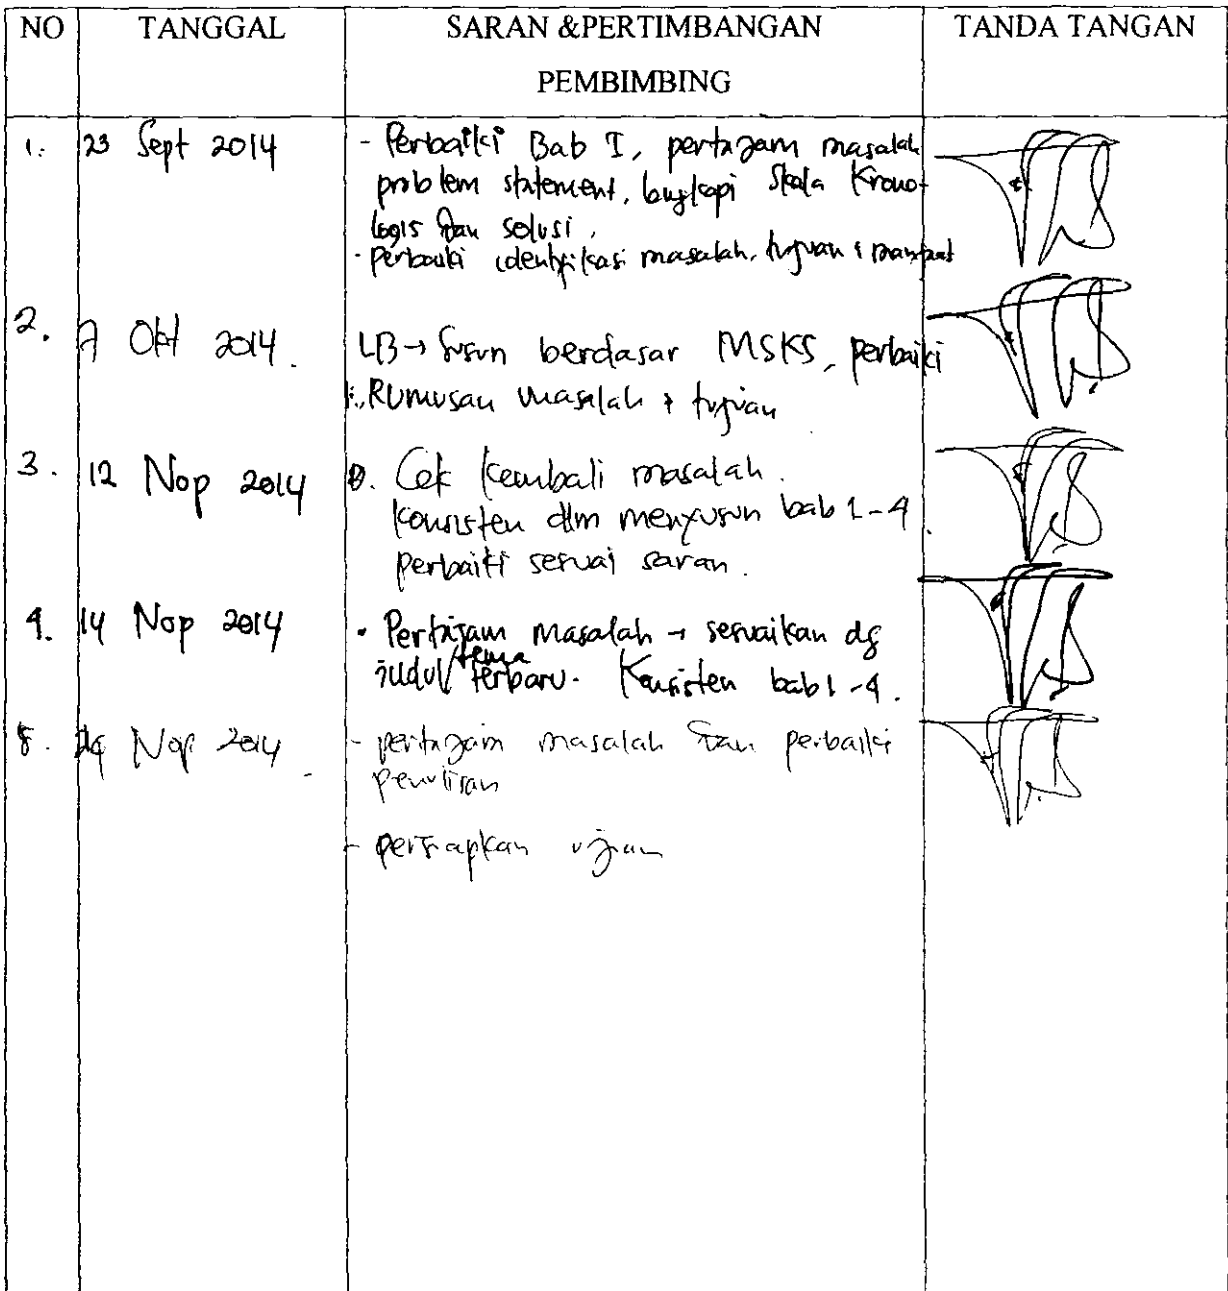 NO TANGGAL SARAN &PERTIMBANGAN TANDA TANGAN
PEMBIMBING
1. 23 Sept 2014 - Perbaiki Bab I, pertajam masalah
problem statement, lengkapi Skala Krono-
logis dan solusi.
- perbaiki identifikasi masalah, tujuan & manfaat
2. 7 Okt 2014. LB → susun berdasar MSKS, perbaiki
Rumusan masalah & tujuan
3. 12 Nop 2014 Cek kembali masalah.
konsisten dlm menyusun bab 1-4.
perbaiki sesuai saran.
4. 14 Nop 2014 • Pertajam masalah → sesuaikan dg
judul/tema terbaru. Konsisten bab 1-4.
5. Nop 2014. - pertajam masalah dan perbaiki
penulisan
- persiapkan ujian